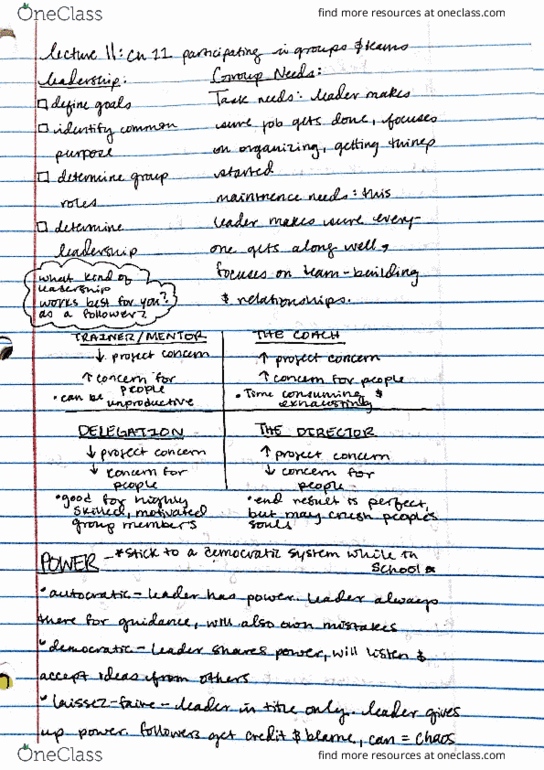 OneClass
find more resources at oneclass.com
lecture 11: ch 11 participating in groups & teams
leadership:
□ define goals
□ identify common
purpose
□ determine group
roles
□ determine
leadership
Group Needs:
Task needs: leader makes
sure job gets done, focuses
on organizing, getting things
started
maintnence needs: this
leader makes sure every-
one gets along well,
focuses on team-building
& relationships.
what kind of
leadership
works best for you?
as a follower?
TRAINER/MENTOR
↓ project concern
↑ concern for
people
• can be
unproductive
THE COACH
↑ project concern
↑ concern for people
• Time consuming &
exhausting
DELEGATION
↓ project concern
↓ concern for
people
• good for highly
skilled, motivated
group members
THE DIRECTOR
↑ project concern
↓ concern for
people
• end result is perfect,
but may crush people's
souls
POWER - *stick to a democratic system while in
school*
• autocratic - leader has power. Leader always
there for guidance, will also own mistakes
• democratic - leader shares power, will listen &
accept ideas from others
• laissez-faire - leader in title only. leader gives
up power. followers get credit & blame, can = chaos
OneClass
find more resources at oneclass.com